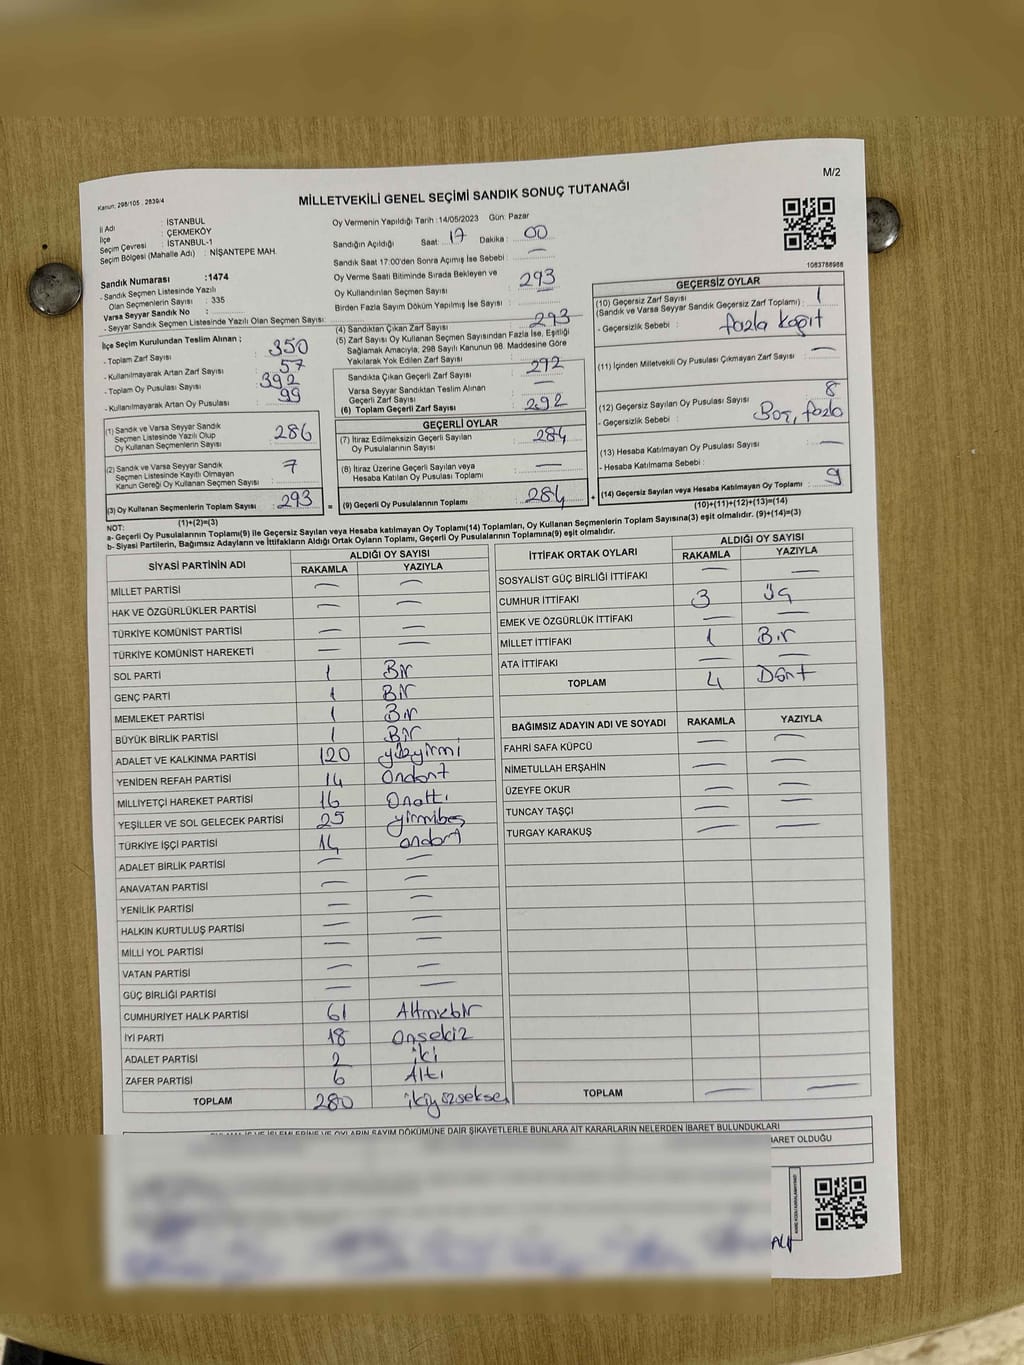 M/2
Kanun: 298/105 , 2839/4
MİLLETVEKİLİ GENEL SEÇİMİ SANDIK SONUÇ TUTANAĞI
İl Adı : İSTANBUL
İlçe : ÇEKMEKÖY
Seçim Çevresi : İSTANBUL-1
Seçim Bölgesi (Mahalle Adı) : NİŞANTEPE MAH.
Oy Vermenin Yapıldığı Tarih :14/05/2023 Gün: Pazar
Sandığın Açıldığı Saat: 17 Dakika : 00
Sandık Saat 17:00'den Sonra Açımış İse Sebebi : —
Oy Verme Saati Bitiminde Sırada Bekleyen ve
Oy Kullandırılan Seçmen Sayısı : 293
Birden Fazla Sayım Döküm Yapılmış İse Sayısı : —
1083788988
Sandık Numarası :1474
- Sandık Seçmen Listesinde Yazılı
Olan Seçmenlerin Sayısı : 335
Varsa Seyyar Sandık No :
- Seyyar Sandık Seçmen Listesinde Yazılı Olan Seçmen Sayısı:
İlçe Seçim Kurulundan Teslim Alınan ;
- Toplam Zarf Sayısı : 350
- Kullanılmayarak Artan Zarf Sayısı : 57
- Toplam Oy Pusulası Sayısı : 392
- Kullanılmayarak Artan Oy Pusulası : 99
(1) Sandık ve Varsa Seyyar Sandık
Seçmen Listesinde Yazılı Olup
Oy Kullanan Seçmenlerin Sayısı : 286
(2) Sandık ve Varsa Seyyar Sandık
Seçmen Listesinde Kayıtlı Olmayan
Kanun Gereği Oy Kullanan Seçmen Sayısı : 7
(3) Oy Kullanan Seçmenlerin Toplam Sayısı : 293
(1)+(2)=(3)
(4) Sandıktan Çıkan Zarf Sayısı : 293
(5) Zarf Sayısı Oy Kullanan Seçmen Sayısından Fazla İse, Eşitliği
Sağlamak Amacıyla, 298 Sayılı Kanunun 98. Maddesine Göre
Yakılarak Yok Edilen Zarf Sayısı :
Sandıkta Çıkan Geçerli Zarf Sayısı : 292
Varsa Seyyar Sandıktan Teslim Alınan
Geçerli Zarf Sayısı : —
(6) Toplam Geçerli Zarf Sayısı : 292
GEÇERLİ OYLAR
(7) İtiraz Edilmeksizin Geçerli Sayılan
Oy Pusulalarının Sayısı : 284
(8) İtiraz Üzerine Geçerli Sayılan veya
Hesaba Katılan Oy Pusulası Toplamı : —
= (9) Geçerli Oy Pusulalarının Toplamı : 284 +
GEÇERSİZ OYLAR
(10) Geçersiz Zarf Sayısı : 1
(Sandık ve Varsa Seyyar Sandık Geçersiz Zarf Toplamı)
- Geçersizlik Sebebi : fazla kağıt
(11) İçinden Milletvekili Oy Pusulası Çıkmayan Zarf Sayısı : —
(12) Geçersiz Sayılan Oy Pusulası Sayısı : 8
- Geçersizlik Sebebi : Boş, fazla
(13) Hesaba Katılmayan Oy Pusulası Sayısı : —
- Hesaba Katılmama Sebebi :
(14) Geçersiz Sayılan veya Hesaba Katılmayan Oy Toplamı : 9
(10)+(11)+(12)+(13)=(14)
NOT:
a- Geçerli Oy Pusulalarının Toplamı(9) ile Geçersiz Sayılan veya Hesaba katılmayan Oy Toplamı(14) Toplamları, Oy Kullanan Seçmenlerin Toplam Sayısına(3) eşit olmalıdır. (9)+(14)=(3)
b- Siyasi Partilerin, Bağımsız Adayların ve İttifakların Aldığı Ortak Oyların Toplamı, Geçerli Oy Pusulalarının Toplamına(9) eşit olmalıdır.
SİYASİ PARTİNİN ADI ALDIĞI OY SAYISI
RAKAMLA YAZIYLA
MİLLET PARTİSİ — —
HAK VE ÖZGÜRLÜKLER PARTİSİ — —
TÜRKİYE KOMÜNİST PARTİSİ — —
TÜRKİYE KOMÜNİST HAREKETİ — —
SOL PARTİ 1 Bir
GENÇ PARTİ 1 Bir
MEMLEKET PARTİSİ 1 Bir
BÜYÜK BİRLİK PARTİSİ 1 Bir
ADALET VE KALKINMA PARTİSİ 120 yüzyirmi
YENİDEN REFAH PARTİSİ 14 Ondört
MİLLİYETÇİ HAREKET PARTİSİ 16 Onaltı
YEŞİLLER VE SOL GELECEK PARTİSİ 25 yirmibeş
TÜRKİYE İŞÇİ PARTİSİ 14 ondört
ADALET BİRLİK PARTİSİ — —
ANAVATAN PARTİSİ — —
YENİLİK PARTİSİ — —
HALKIN KURTULUŞ PARTİSİ — —
MİLLİ YOL PARTİSİ — —
VATAN PARTİSİ — —
GÜÇ BİRLİĞİ PARTİSİ — —
CUMHURİYET HALK PARTİSİ 61 Altmışbir
İYİ PARTİ 18 Onsekiz
ADALET PARTİSİ 2 iki
ZAFER PARTİSİ 6 Altı
TOPLAM 280 ikiyüzseksen
İTTİFAK ORTAK OYLARI ALDIĞI OY SAYISI
RAKAMLA YAZIYLA
SOSYALİST GÜÇ BİRLİĞİ İTTİFAKI — —
CUMHUR İTTİFAKI 3 Üç
EMEK VE ÖZGÜRLÜK İTTİFAKI — —
MİLLET İTTİFAKI 1 Bir
ATA İTTİFAKI — —
TOPLAM 4 Dört
BAĞIMSIZ ADAYIN ADI VE SOYADI RAKAMLA YAZIYLA
FAHRİ SAFA KÜPCÜ — —
NİMETULLAH ERŞAHİN — —
ÜZEYFE OKUR — —
TUNCAY TAŞÇI — —
TURGAY KARAKUŞ — —
TOPLAM — —
İŞLEMLERİNE VE OYLARIN SAYIM DÖKÜMÜNE DAİR ŞİKAYETLERLE BUNLARA AİT KARARLARIN NELERDEN İBARET BULUNDUKLARI
BARET OLDUĞU